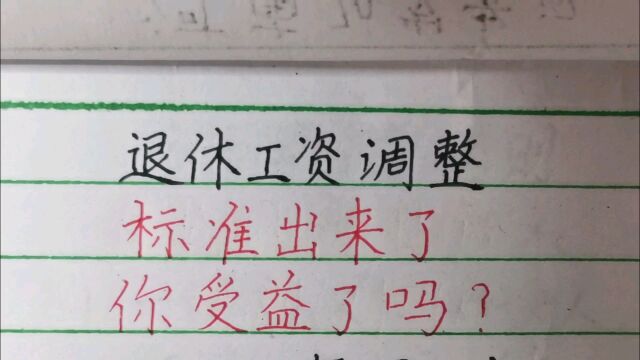 退休工资调整
标准出来了
你受益了吗?